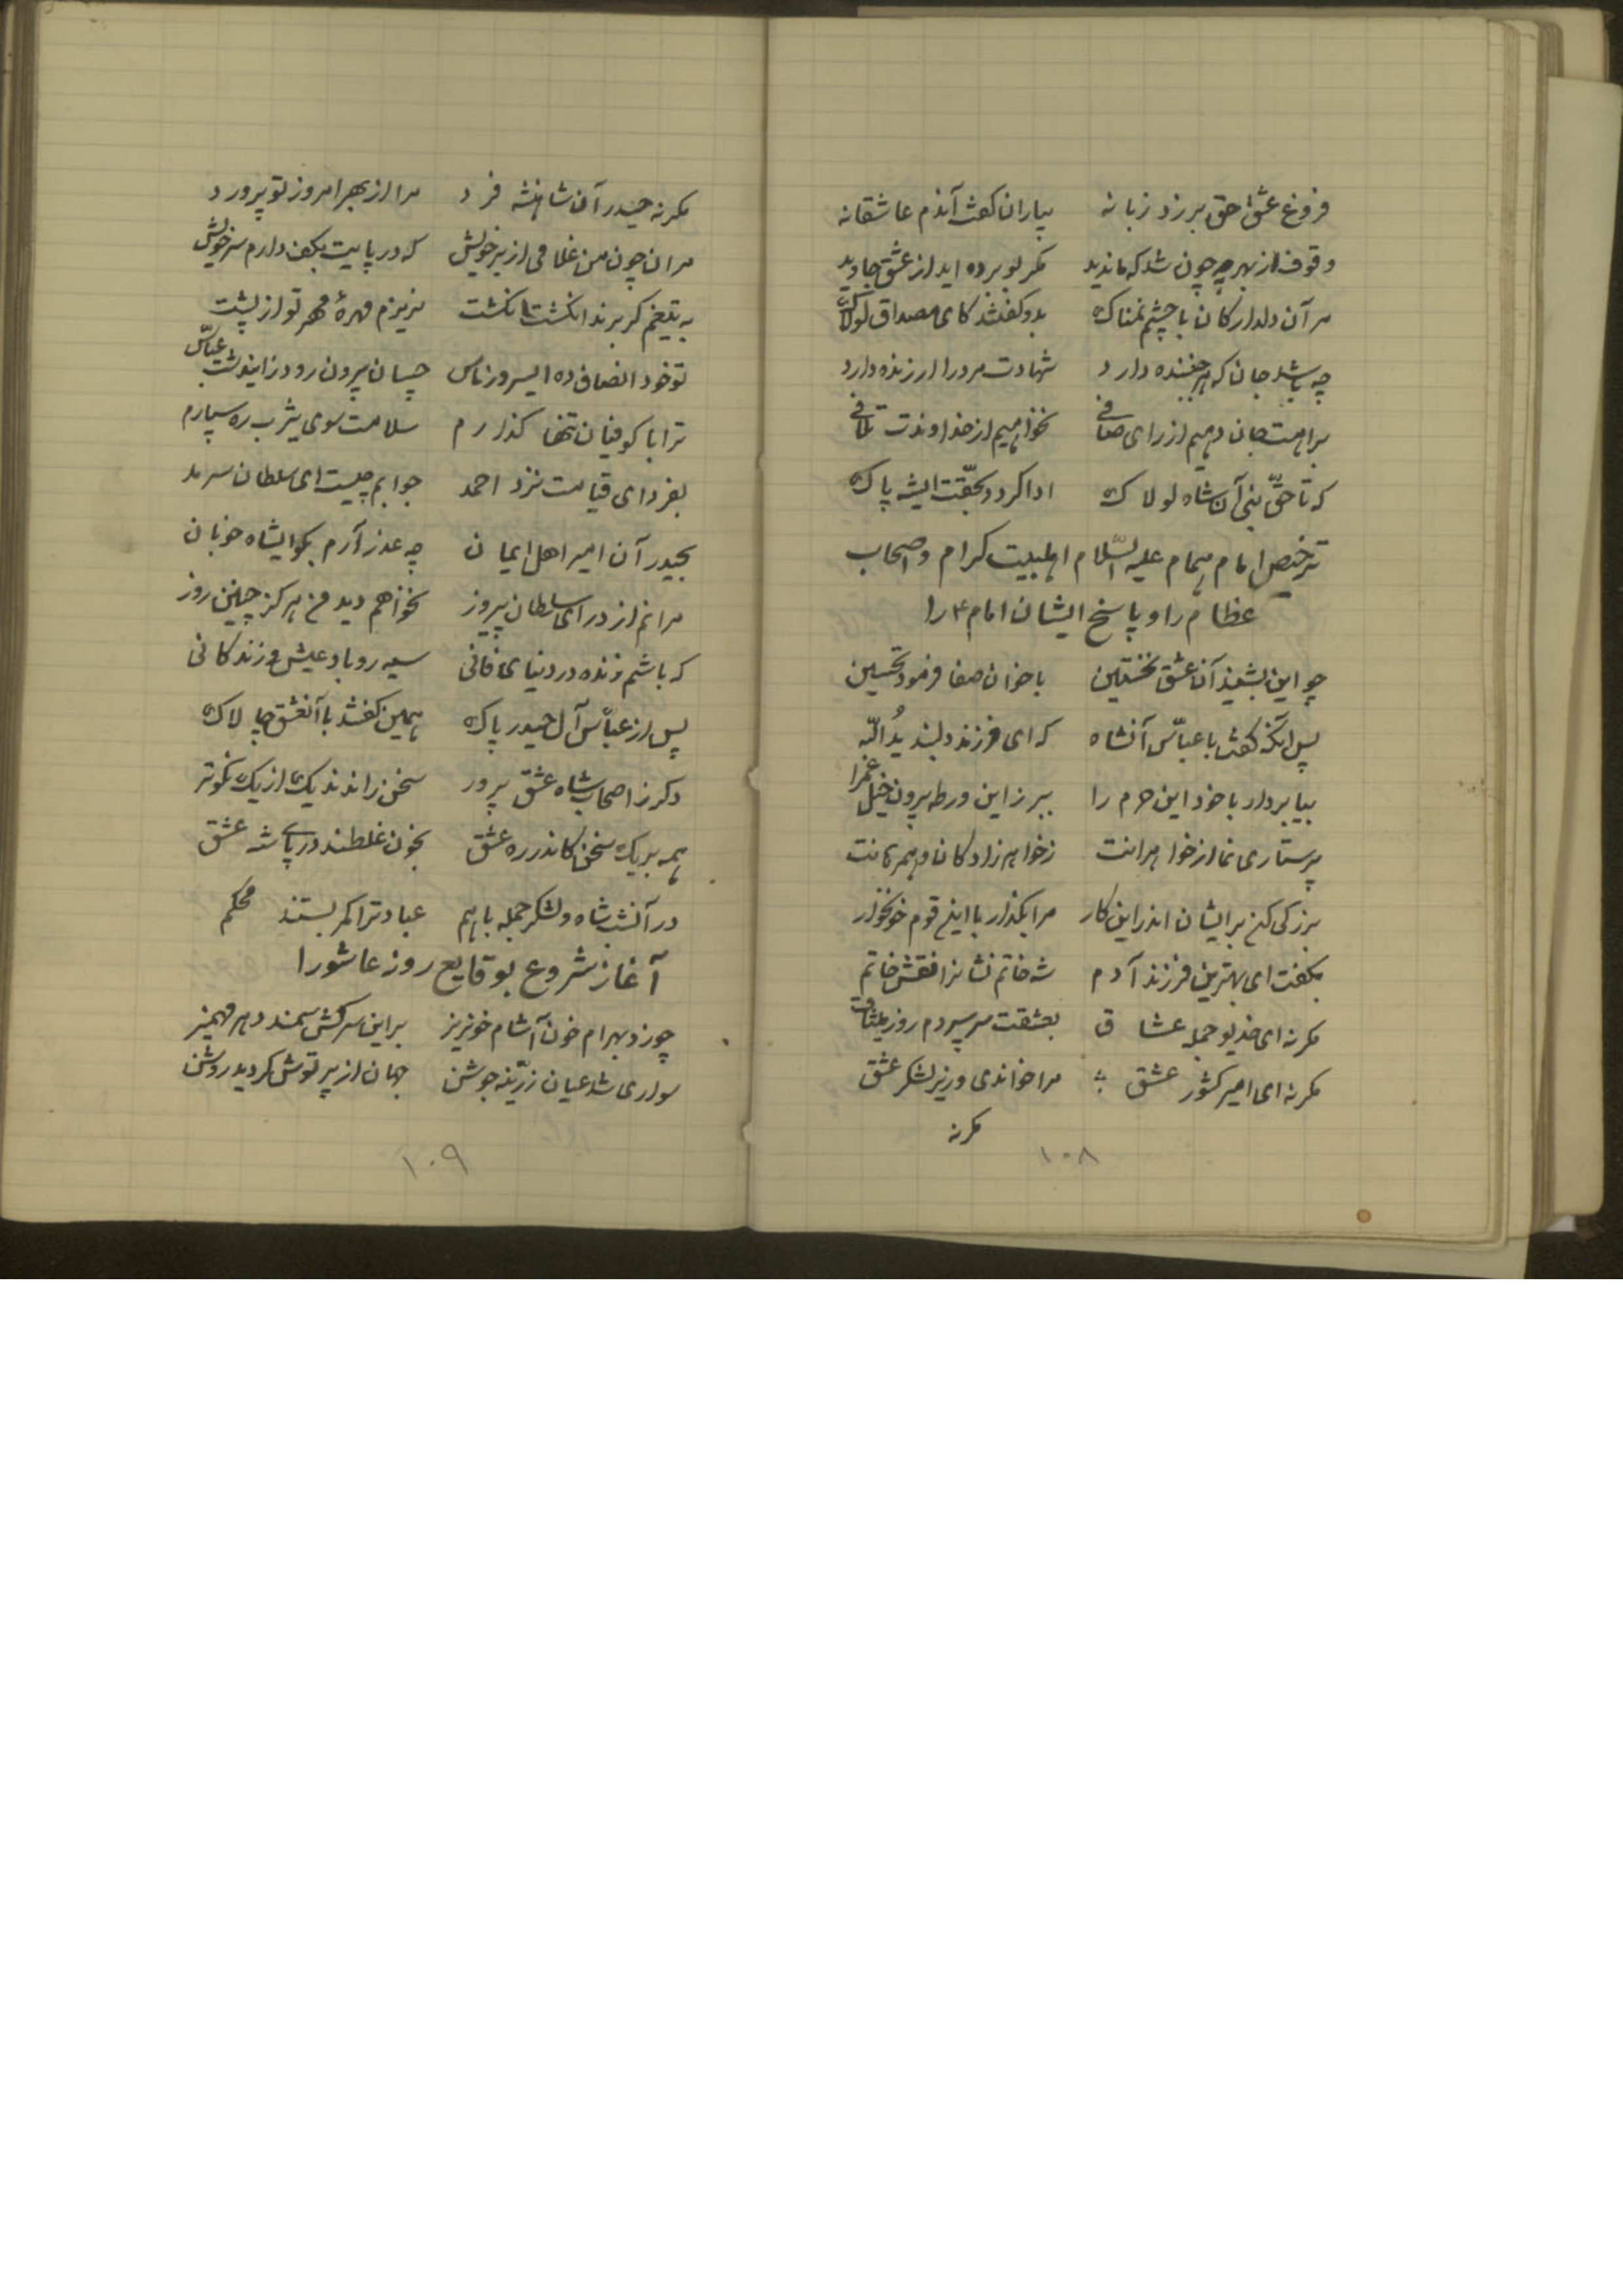 فروغ عشق حق بر زد زبانه بیاران گفت آندم عاشقانه
وقوف از بهر چه چون شد که ماندید مگر بو برده اید از عشق جاوید
مر آن دلدارکان با چشم نمناک بدو گفتند کای مصداق لولاک
چه باشد جان که هر جنبنده دارد شهادت مرد را ارزنده دارد
براهت جان دهیم از رای صافی نخواهیم از خداوندت تلافی
که تا حق نبی آن شاه لولاک ادا گردد بحقت ایشه پاک
ترخیص امام همام علیه السّلام اهلبیت کرام و اصحاب
عظام را و پاسخ ایشان امام ع را
چو این بشنید آن عشق نخستین باخوان صفا فرمود تحسین
پس آنگه گفت با عباس آنشاه که ای فرزند دلبند یدُالله
بیا بردار با خود این حرم را ببر زاین ورطه بیرون خیل غم را
پرستاری نما از خواهرانت ز خواهرزادگان و همرهانت
بزرگی کن بر ایشان اندر این کار مرا بگذار با این قوم خونخوار
بگفت ای بهترین فرزند آدم شه خاتم نشانرا نقش خاتم
مگر نه ای خدیو جمله عشاق بعشقت سر سپردم روز میثاق
مگر نه ای امیر کشور عشق مرا خواندی وزیر لشکر عشق
مگر نه
۱۰۸
مگر نه حیدر آن شاهنشه فرد مرا از بهر امروز تو پرورد
مران چون من غلامی از بر خویش که در پایت بکف دارم سر خویش
به تیغم گر برند انگشت انگشت نریزم مهرهٔ مهر تو از پشت
تو خود انصاف ده ایسرور ناس چسان بیرون رود زایندشت عبّاس
ترا با کوفیان تنها گذارم سلامت سوی یثرب ره سپارم
بفردای قیامت نزد احمد جوابم چیست ای سلطان سرمد
بحیدر آن امیر اهل ایمان چه عذر آرم بگو ایشاه خوبان
مرانم از در ای سلطان پیروز نخواهم دید من هرگز چنین روز
که باشم زنده در دنیای فانی سیه رو باد عیش و زندگانی
پس از عبّاس آل حیدر پاک همین گفتند با آنعشق چالاک
دگر ز اصحاب شاه عشق پرور سخن راندند یک از یک نکوتر
همه بر یک سخن کاندر ره عشق بخون غلطند در پای شه عشق
در آنشب شاه و لشکر جمله با هم عبادت را کمر بستند محکم
آغاز شروع بوقایع روز عاشورا
چو زد بهرام خون آشام خونریز بر این سرکش سمند دهر مهمیز
سواری شد عیان زرّینه جوشن جهان از پرتوش گردید روشن
۱۰۹